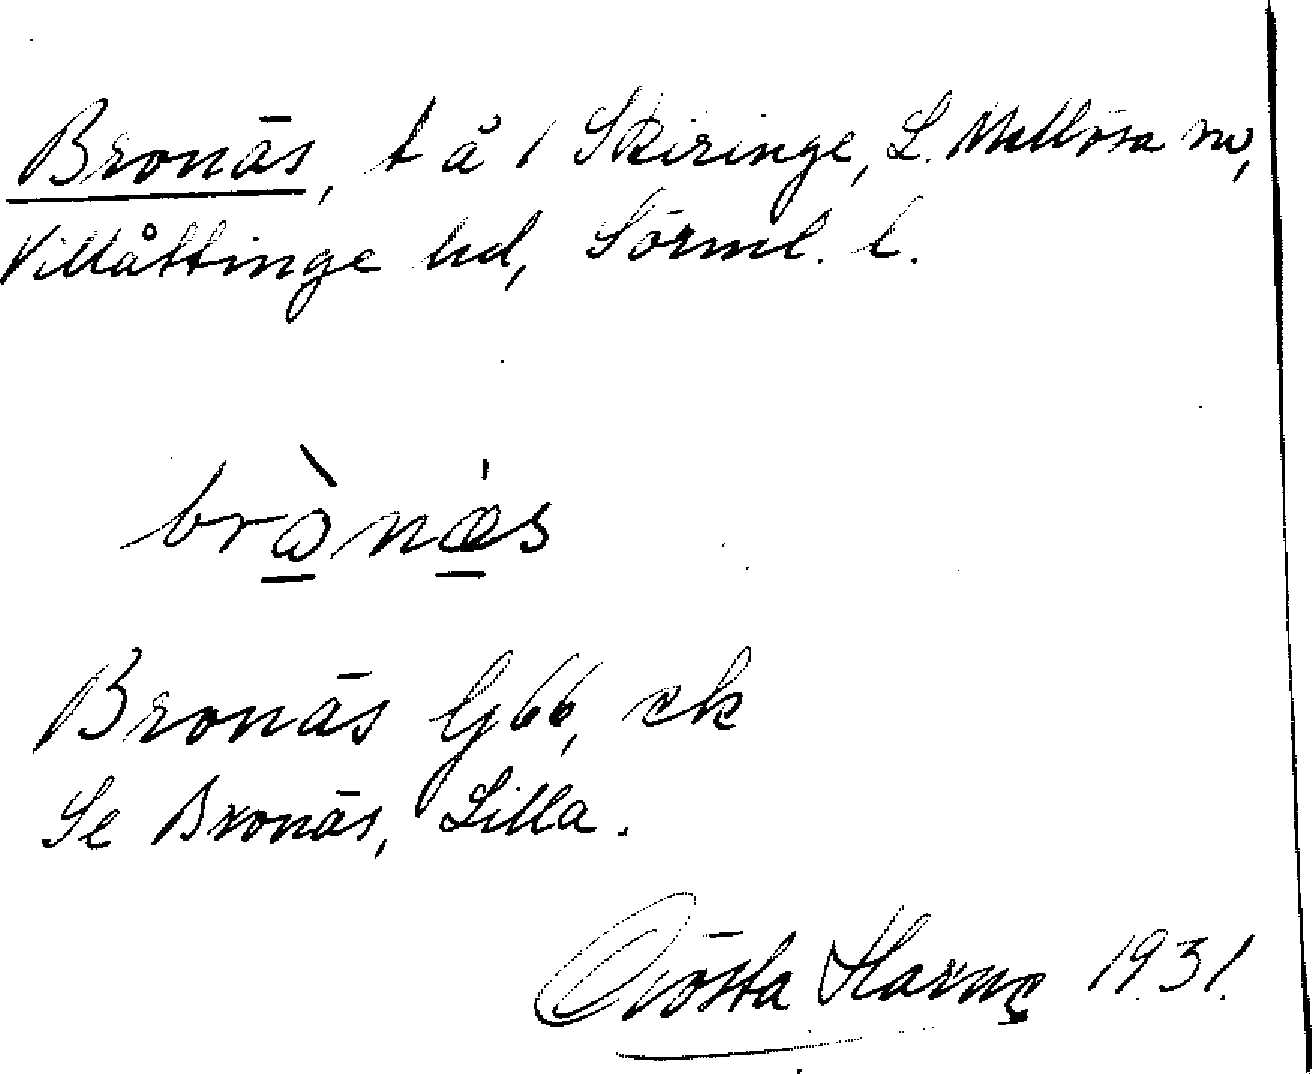 Bronäs, t å 1 Skiringe, L. Mellösa sn,
Villåttinge hd, Sörml. l.
brònæ̀s
Bronäs Gj 66, ek
Se Bronäs, Lilla.
Gösta Harne 1931.